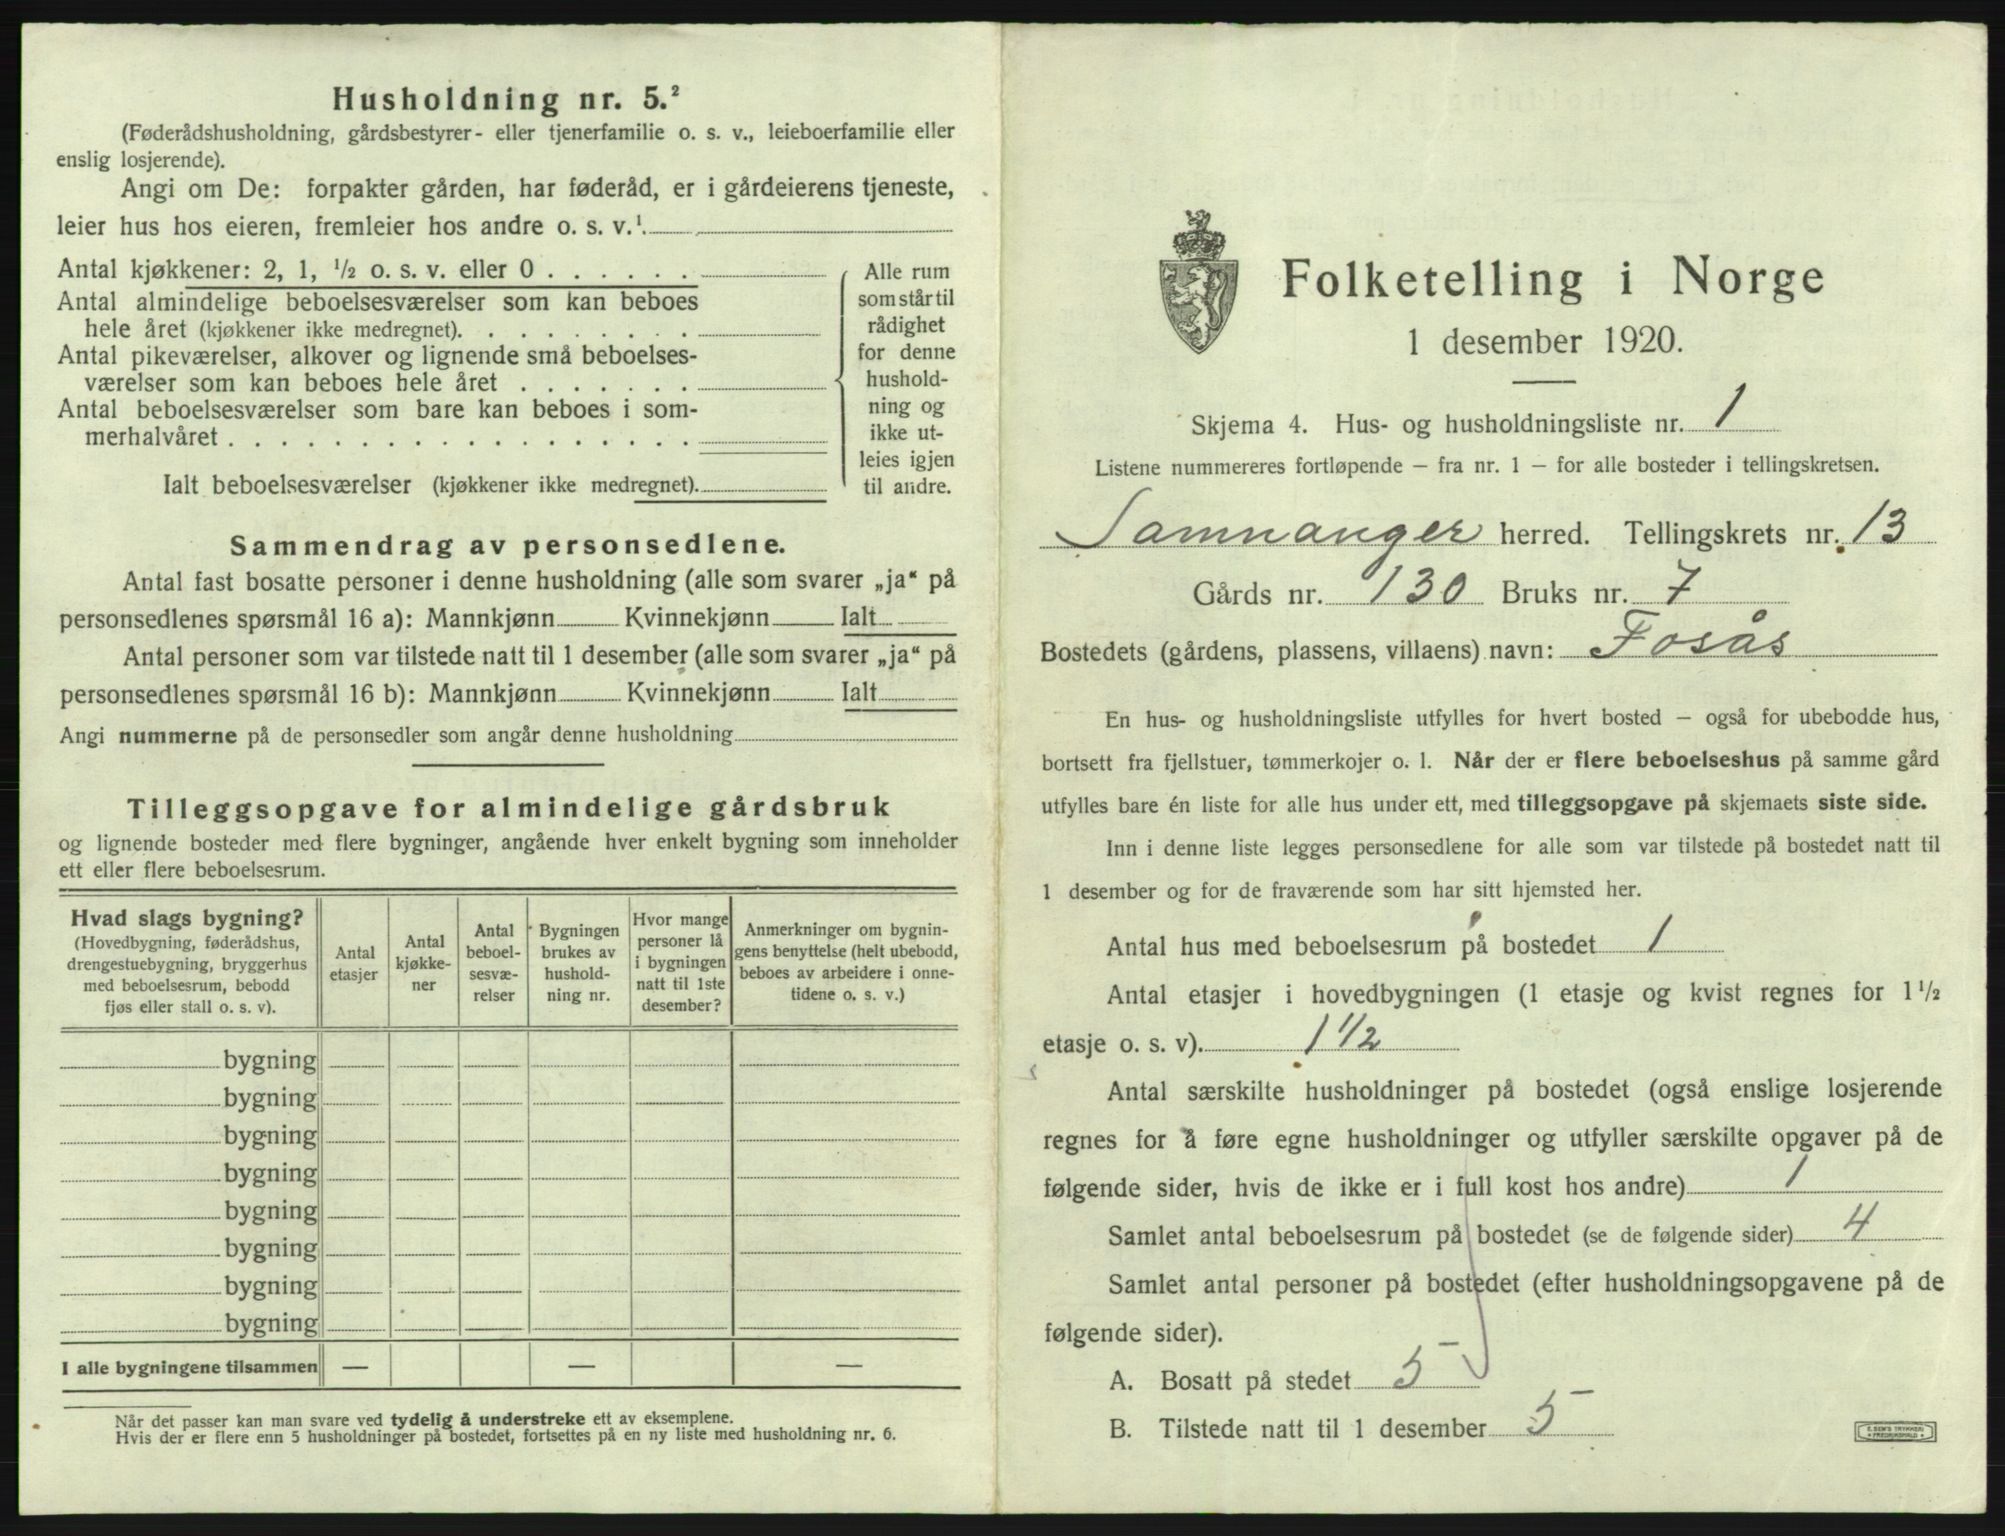 Husholdning nr. 5.²
(Føderådshusholdning, gårdsbestyrer- eller tjenerfamilie o. s. v., leieboerfamilie eller
enslig losjerende).
Angi om De: forpakter gården, har føderåd, er i gårdeierens tjeneste,
leier hus hos eieren, fremleier hos andre o. s. v.¹
Antal kjøkkener: 2, 1, ½ o. s. v. eller 0 . . . . . .
Antal almindelige beboelsesværelser som kan beboes
hele året (kjøkkener ikke medregnet). . . . . . . . .
Antal pikeværelser, alkover og lignende små beboelses-
værelser som kan beboes hele året . . . . . . .
Antal beboelsesværelser som bare kan beboes i som-
merhalvåret . . . . . . . . . . . . . . . . . .
Ialt beboelsesværelser (kjøkkener ikke medregnet).
Alle rum
som står til
rådighet
for denne
hushold-
ning og
ikke ut-
leies igjen
til andre.
Sammendrag av personsedlene.
Antal fast bosatte personer i denne husholdning (alle som svarer „ja“ på
personsedlenes spørsmål 16 a): Mannkjønn Kvinnekjønn Ialt
Antal personer som var tilstede natt til 1 desember (alle som svarer „ja“ på
personsedlenes spørsmål 16 b): Mannkjønn Kvinnekjønn Ialt
Angi nummerne på de personsedler som angår denne husholdning
Tilleggsopgave for almindelige gårdsbruk
og lignende bosteder med flere bygninger, angående hver enkelt bygning som inneholder
ett eller flere beboelsesrum.
Hvad slags bygning?
(Hovedbygning, føderådshus,
drengestuebygning, bryggerhus
med beboelsesrum, bebodd
fjøs eller stall o. s. v).
Antal
etasjer
Antal
kjøkke-
ner
Antal
beboel-
sesvæ-
relser
Bygningen
brukes av
hushold-
ning nr.
Hvor mange
personer lå
i bygningen
natt til 1ste
desember?
Anmerkninger om bygnin-
gens benyttelse (helt ubebodd,
beboes av arbeidere i onne-
tidene o. s. v.)
bygning
bygning
bygning
bygning
bygning
bygning
bygning
bygning
I alle bygningene tilsammen — — —
Når det passer kan man svare ved tydelig å understreke ett av eksemplene.
Hvis der er flere enn 5 husholdninger på bostedet, fortsettes på en ny liste med husholdning nr. 6.
Folketelling i Norge
1 desember 1920.
Skjema 4. Hus- og husholdningsliste nr. 1
Listene nummereres fortløpende – fra nr. 1 – for alle bosteder i tellingskretsen.
Samnanger herred. Tellingskrets nr. 13
Gårds nr. 130 Bruks nr. 7
Bostedets (gårdens, plassens, villaens) navn: Fosås
En hus- og husholdningsliste utfylles for hvert bosted – også for ubebodde hus,
bortsett fra fjellstuer, tømmerkojer o. l. Når der er flere beboelseshus på samme gård
utfylles bare én liste for alle hus under ett, med tilleggsopgave på skjemaets siste side.
Inn i denne liste legges personsedlene for alle som var tilstede på bostedet natt til
1 desember og for de fraværende som har sitt hjemsted her.
Antal hus med beboelsesrum på bostedet 1
Antal etasjer i hovedbygningen (1 etasje og kvist regnes for 1½
etasje o. s. v). 1 ½
Antal særskilte husholdninger på bostedet (også enslige losjerende
regnes for å føre egne husholdninger og utfyller særskilte opgaver på de
følgende sider, hvis de ikke er i full kost hos andre) 1
Samlet antal beboelsesrum på bostedet (se de følgende sider) 4
Samlet antal personer på bostedet (efter husholdningsopgavene på de
følgende sider).
A. Bosatt på stedet 5
B. Tilstede natt til 1 desember 5
E. SEM'S TRYKKERI
FREDRIKSHALD